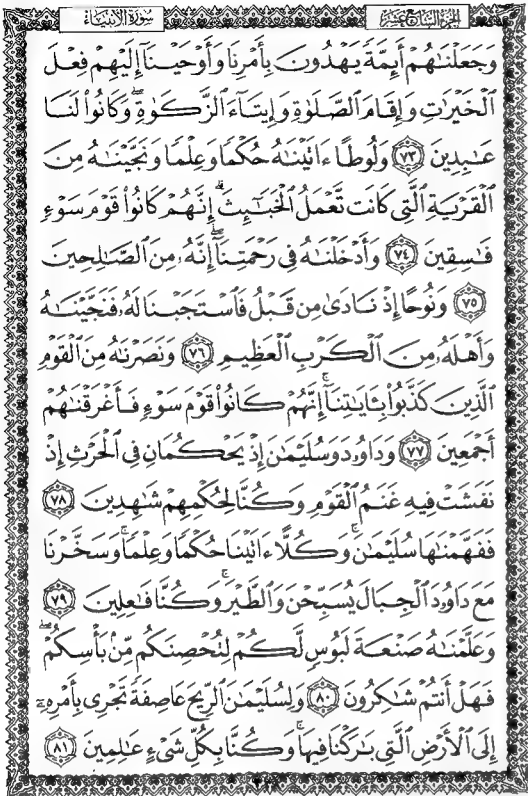 الجزء السابع عشر
سورة الأنبياء
وَجَعَلْنَٰهُمْ أَئِمَّةً يَهْدُونَ بِأَمْرِنَا وَأَوْحَيْنَآ إِلَيْهِمْ فِعْلَ
ٱلْخَيْرَٰتِ وَإِقَامَ ٱلصَّلَوٰةِ وَإِيتَآءَ ٱلزَّكَوٰةِ ۖ وَكَانُوا۟ لَنَا
عَٰبِدِينَ ٧٣ وَلُوطًا ءَاتَيْنَٰهُ حُكْمًا وَعِلْمًا وَنَجَّيْنَٰهُ مِنَ
ٱلْقَرْيَةِ ٱلَّتِى كَانَت تَّعْمَلُ ٱلْخَبَٰٓئِثَ ۗ إِنَّهُمْ كَانُوا۟ قَوْمَ سَوْءٍ
فَٰسِقِينَ ٧٤ وَأَدْخَلْنَٰهُ فِى رَحْمَتِنَآ ۖ إِنَّهُۥ مِنَ ٱلصَّٰلِحِينَ
٧٥ وَنُوحًا إِذْ نَادَىٰ مِن قَبْلُ فَٱسْتَجَبْنَا لَهُۥ فَنَجَّيْنَٰهُ
وَأَهْلَهُۥ مِنَ ٱلْكَرْبِ ٱلْعَظِيمِ ٧٦ وَنَصَرْنَٰهُ مِنَ ٱلْقَوْمِ
ٱلَّذِينَ كَذَّبُوا۟ بِـَٔايَٰتِنَآ ۚ إِنَّهُمْ كَانُوا۟ قَوْمَ سَوْءٍ فَأَغْرَقْنَٰهُمْ
أَجْمَعِينَ ٧٧ وَدَاوُۥدَ وَسُلَيْمَٰنَ إِذْ يَحْكُمَانِ فِى ٱلْحَرْثِ إِذْ
نَفَشَتْ فِيهِ غَنَمُ ٱلْقَوْمِ وَكُنَّا لِحُكْمِهِمْ شَٰهِدِينَ ٧٨
فَفَهَّمْنَٰهَا سُلَيْمَٰنَ ۚ وَكُلًّا ءَاتَيْنَا حُكْمًا وَعِلْمًا ۚ وَسَخَّرْنَا
مَعَ دَاوُۥدَ ٱلْجِبَالَ يُسَبِّحْنَ وَٱلطَّيْرَ ۚ وَكُنَّا فَٰعِلِينَ ٧٩
وَعَلَّمْنَٰهُ صَنْعَةَ لَبُوسٍ لَّكُمْ لِتُحْصِنَكُم مِّنۢ بَأْسِكُمْ ۖ
فَهَلْ أَنتُمْ شَٰكِرُونَ ٨٠ وَلِسُلَيْمَٰنَ ٱلرِّيحَ عَاصِفَةً تَجْرِى بِأَمْرِهِۦٓ
إِلَى ٱلْأَرْضِ ٱلَّتِى بَٰرَكْنَا فِيهَا ۚ وَكُنَّا بِكُلِّ شَىْءٍ عَٰلِمِينَ ٨١